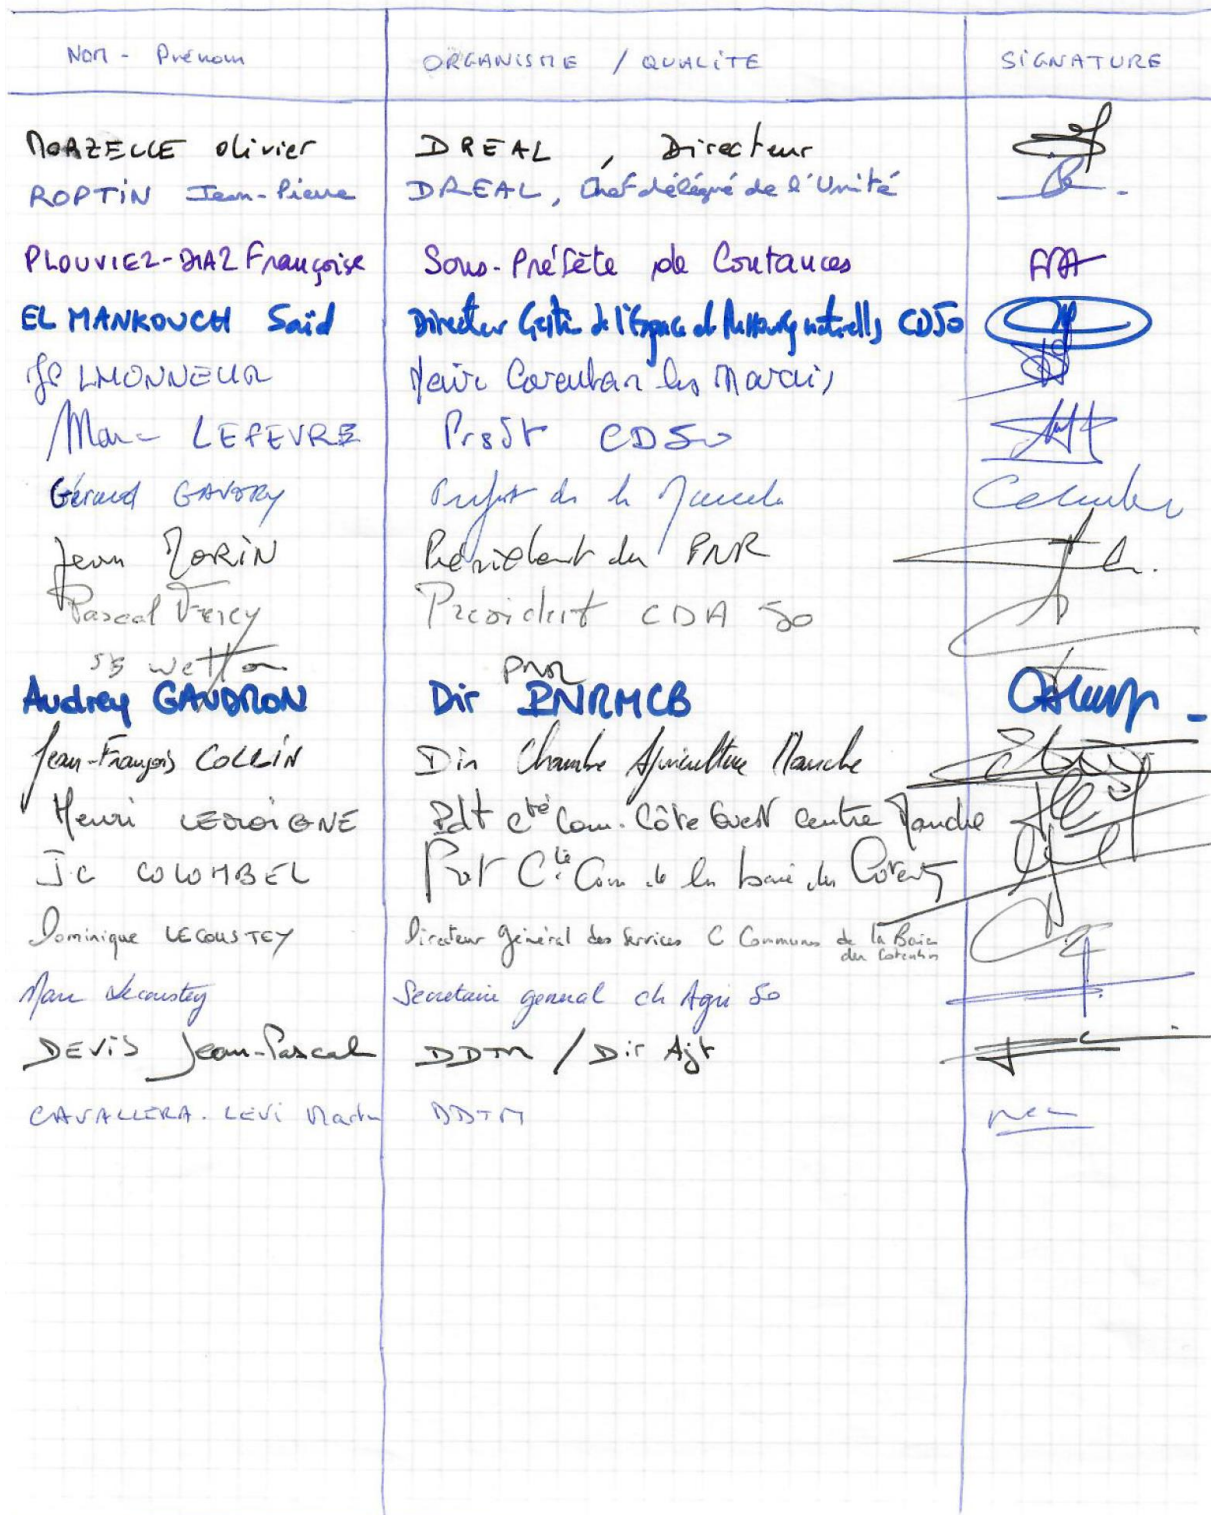 NOM - Prénom ORGANISME / QUALITE SIGNATURE
MORZELLE Olivier DREAL, Directeur
ROPTIN Jean-Pierre DREAL, Chef délégué de l'Unité
PLOUVIEZ-DIAZ Françoise Sous-Préfète de Coutances
EL MANKOUCH Saïd Directeur Gestion de l'Espace et Ressources naturelles CD50
JP LHONNEUR Maire Carentan les Marais
Marc LEFEVRE Prsdt CD50
Gérard GAVORY Préfet de la Manche
Jean MORIN Président du PNR
Pascal Férey President CDA 50
JB Wetton PNR
Audrey GANDRON Dir PNRMCB
Jean-François COLLIN Dir Chambre Agriculture Manche
Henri LEMOIGNE Pdt Cté Com. Côte Ouest Centre Manche
J.C COLOMBEL Pdt Cté Com de la baie du Cotentin
Dominique LECOUSTEY Directeur Général des Services C Communes de la Baie
du Cotentin
Marc Lecoustey Secretaire general ch Agri 50
DEVIS Jean-Pascal DDTM / Dir Ajt
CAVALLERA-LEVI DDTM